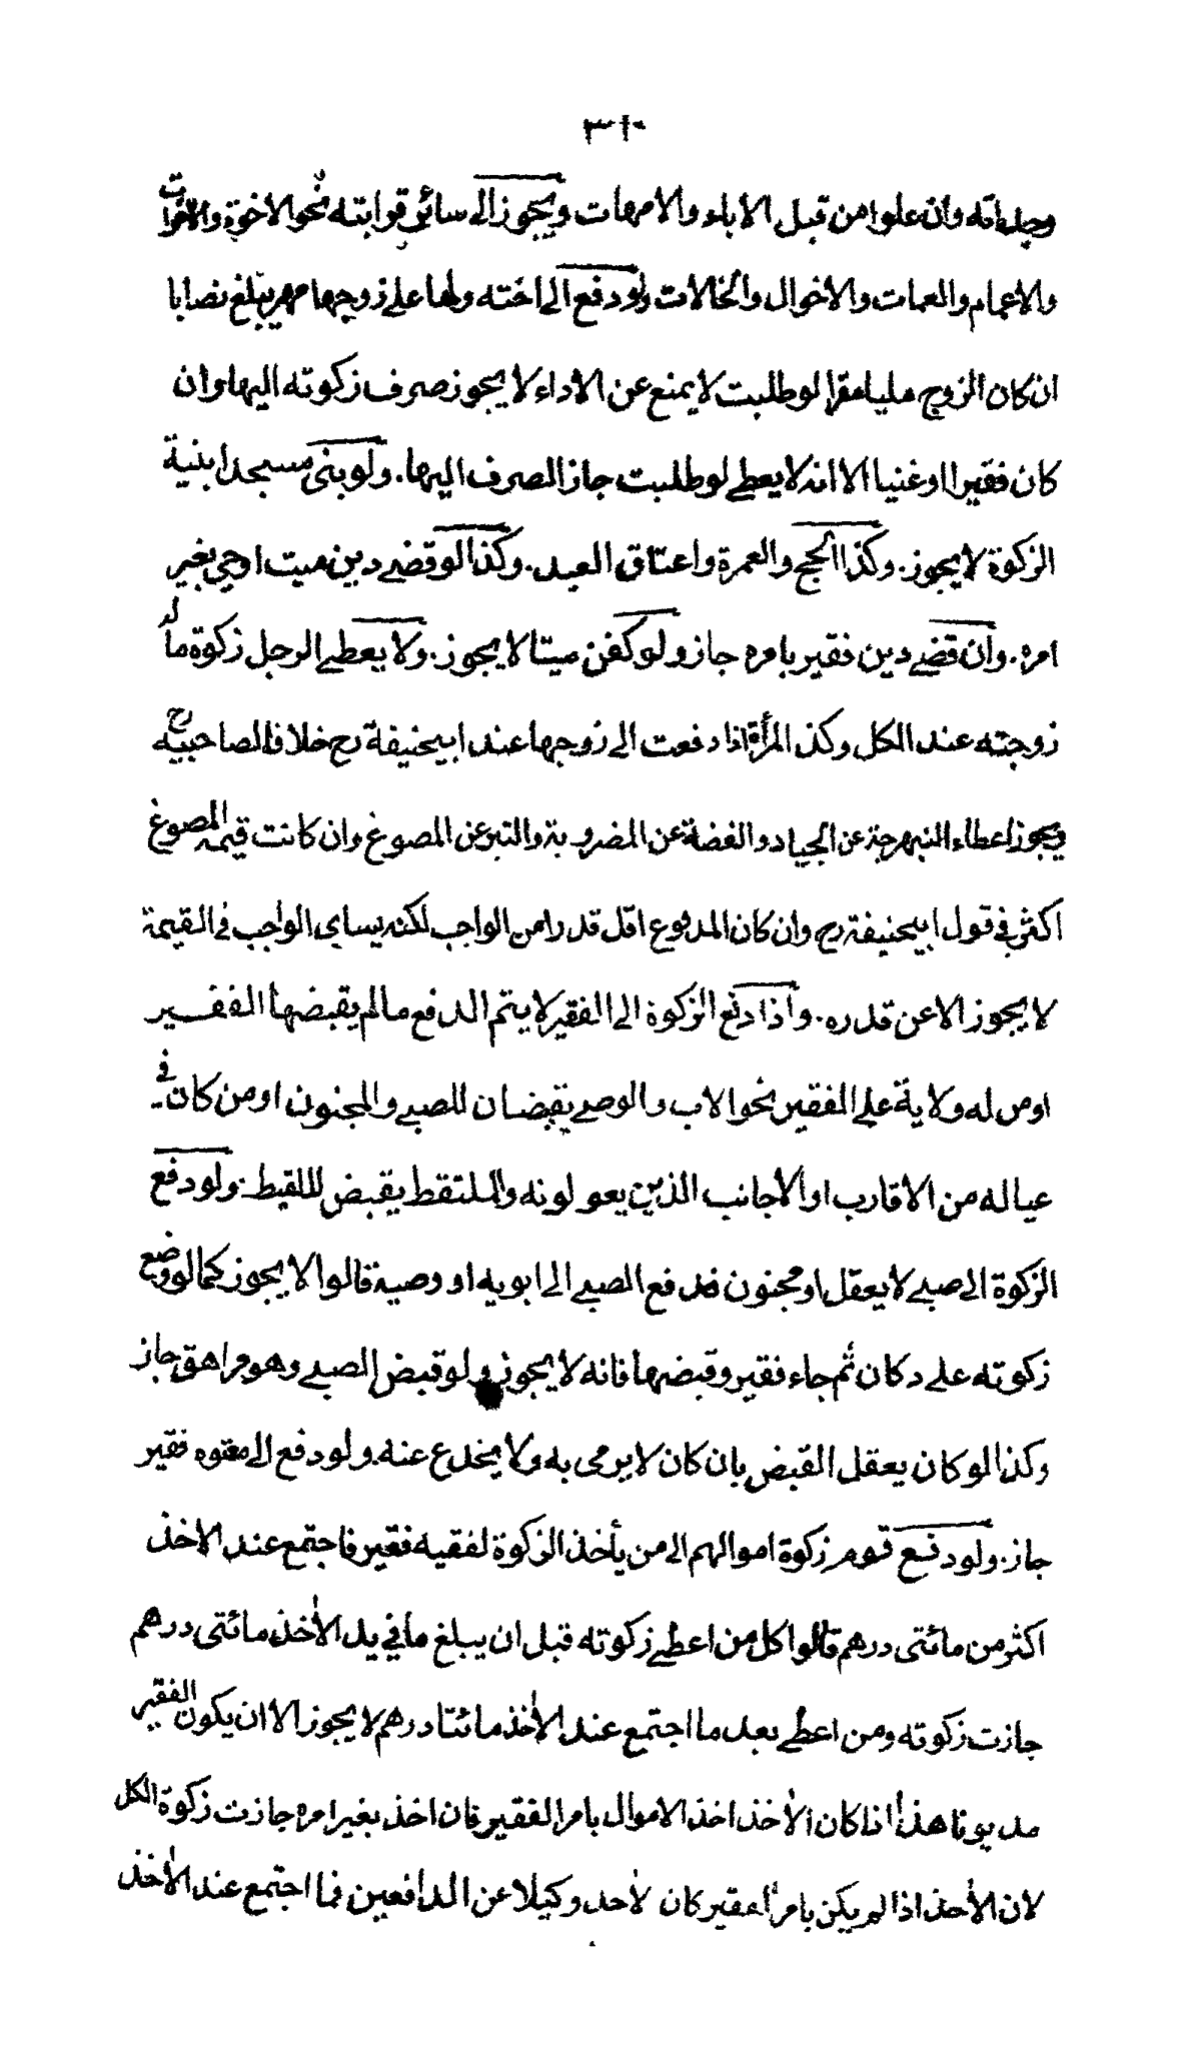 ٣١٠
وجداته وان علوا من قبل الاباء والامهات ويجوز الى سائر قرابته نحو الاخوة والاخوات
والاعمام والعمات والاخوال والخالات ولو دفع الى اخته ولها على زوجها مهر يبلغ نصابا
ان كان الزوج مليا مقرا لو طلبت لا يمنع عن الاداء لا يجوز صرف زكوته اليها وان
كان فقيرا او غنيا الا انه لا يعطى لو طلبت جاز الصرف اليها. ولو بنى مسجدا بنية
الزكوة لا يجوز. وكذا الحج والعمرة واعتاق العبد. وكذا لو قضى دين ميت او حي بغير
امره. وان قضى دين فقير بامره جاز ولو كفن ميتا لا يجوز. ولا يعطى الرجل زكوة ماله
زوجته عند الكل وكذ المرأة اذا دفعت الى زوجها عند ابيحنيفة رح خلافا لصاحبيه رح
ويجوز اعطاء النبهرجة عن الجياد والفضة عن المضروبة والتبر عن المصوغ وان كانت قيمة المصوغ
اكثر في قول ابيحنيفة رح وان كان المدفوع اقل قدرا من الواجب لكنه يساوي الواجب في القيمة
لا يجوز الا عن قدره. واذا دفع الزكوة الى الفقير لا يتم الدفع ما لم يقبضها الفقير
او من له ولاية على الفقير نحو الاب والوصي يقبضان للصبي والمجنون او من كان في
عياله من الاقارب او الاجانب الذين يعولونه والملتقط يقبض للقيط. ولو دفع
الزكوة الى صبي لا يعقل او مجنون فدفع الصبي الى ابويه او وصيه قالوا لا يجوز كما لو وضع
زكوته على دكان ثم جاء فقير وقبضها فانه لا يجوز ولو قبض الصبي وهو مراهق جاز
وكذا لو كان يعقل القبض بان كان لا يرمى به ولا يخدع عنه. ولو دفع الى معتوه فقير
جاز. ولو دفع قوم زكوة اموالهم الى من يأخذ الزكوة لفقيه فقير فاجتمع عند الاخذ
اكثر من مائتي درهم قالوا كل من اعطى زكوته قبل ان يبلغ ما في يد الاخذ مائتي درهم
جازت زكوته ومن اعطى بعد ما اجتمع عند الاخذ مائتا درهم لا يجوز الا ان يكون الفقير
مديونا هذا اذا كان الاخذ اخذ الاموال بامر الفقير فان اخذ بغير امره جازت زكوة الكل
لان الاخذ اذا لم يكن بامر الفقير كان لاحد وكيلا عن الدافعين فما اجتمع عند الاخذ